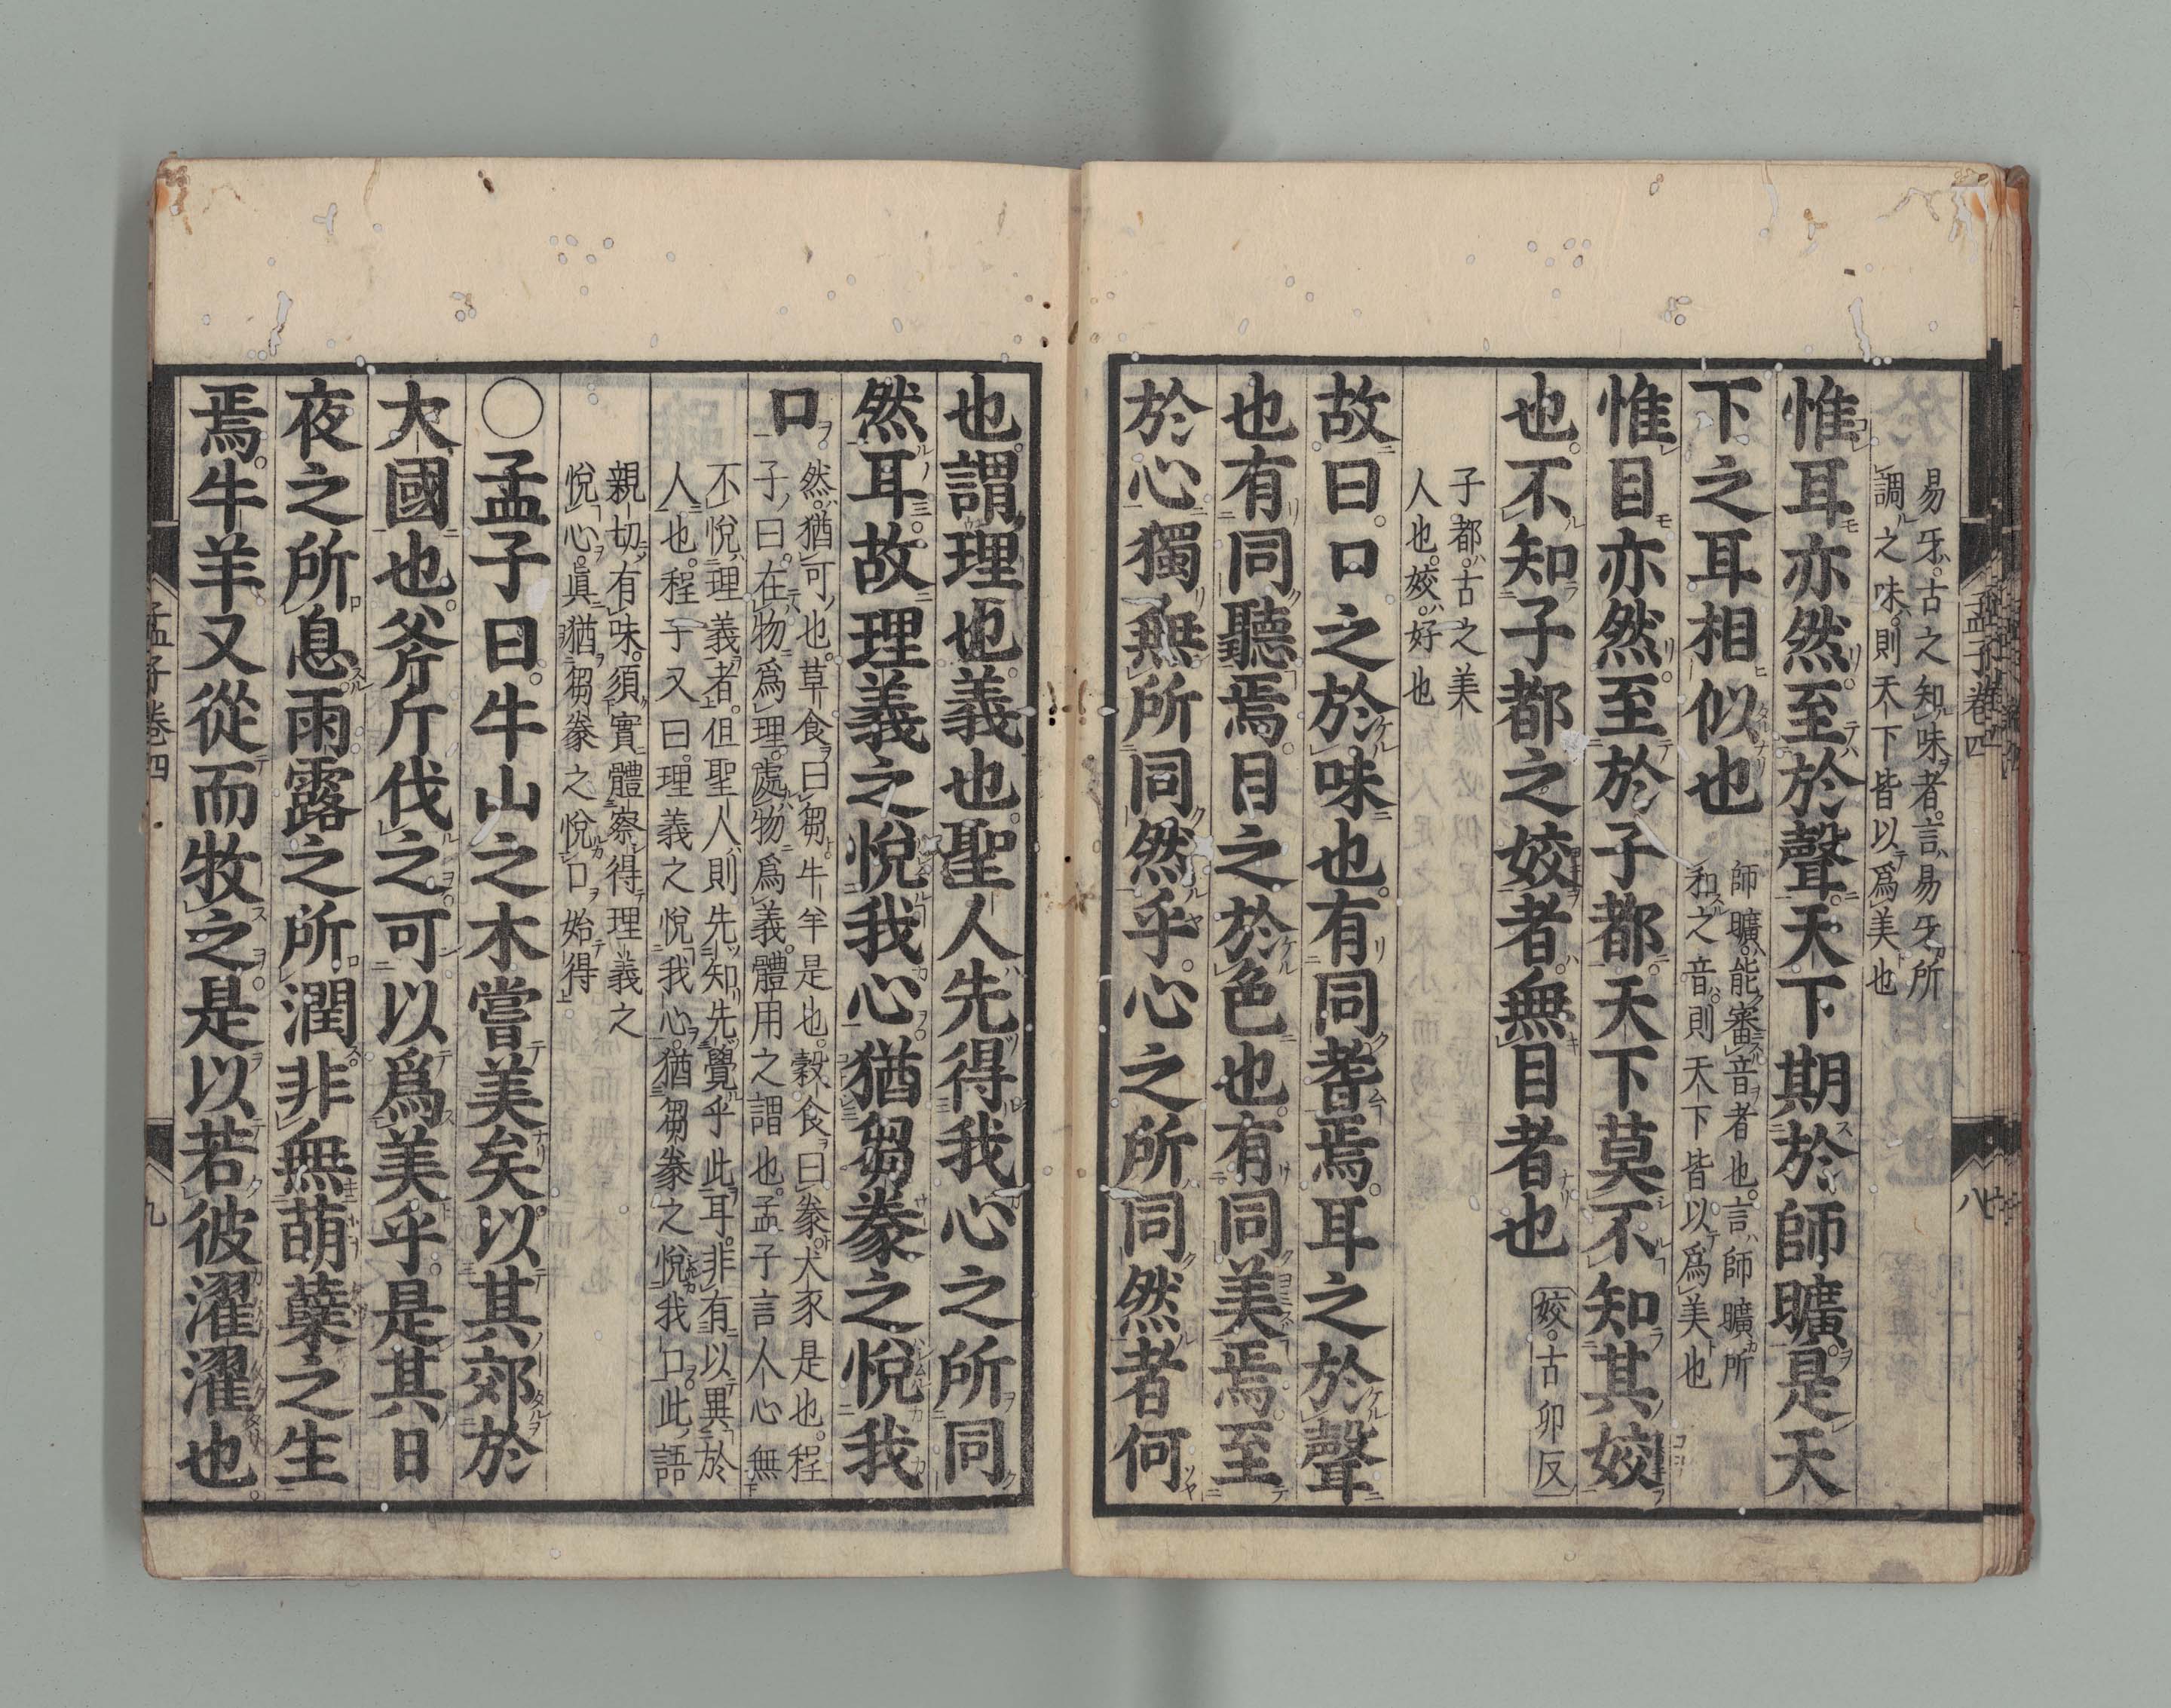 易牙。古之知味者。言易牙所
調之味。則天下皆以爲美也
惟耳亦然。至於聲。天下期於師曠。是天
下之耳相似也
師曠。能審音者也。言師曠所
和之音。則天下皆以爲美也
惟目亦然。至於子都。天下莫不知其姣
也。不知子都之姣者。無目者也
姣。古卯反
子都。古之美
人也。姣。好也
故曰。口之於味也。有同耆焉。耳之於聲
也有同聽焉。目之於色也。有同美焉。至
於心獨無所同然乎。心之所同然者何
也。謂理也。義也。聖人先得我心之所同
然耳。故理義之悅我心。猶芻豢之悅我
口。
然。猶可也。草食曰芻。牛羊是也。穀食曰豢。犬豕是也。程
子曰。在物爲理。處物爲義。體用之謂也。孟子言人心無
不悅理義者。但聖人則先知先覺乎此耳。非有以異於
人也。程子又曰。理義之悅我心。猶芻豢之悅我口。此語
親切有味。須實體察得理義之
悅心。眞猶芻豢之悅口。始得
○孟子曰。牛山之木嘗美矣。以其郊於
大國也。斧斤伐之。可以爲美乎。是其日
夜之所息。雨露之所潤。非無萌櫱之生
焉。牛羊又從而牧之。是以若彼濯濯也。
孟子卷四
八
孟子卷四
九